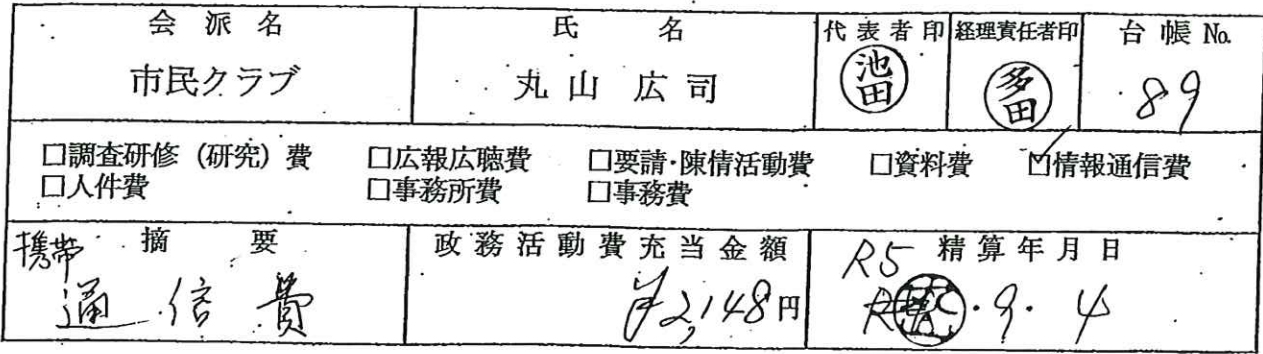 会派名 氏名 代表者印 経理責任者印 台帳No.
市民クラブ 丸山広司 池田 多田 89
□調査研修（研究）費 □広報広聴費 □要請・陳情活動費 □資料費 ☑情報通信費
□人件費 □事務所費 □事務費
携帯 摘要 政務活動費充当金額 R5 精算年月日
通信費 ¥2,148円 ・9・4